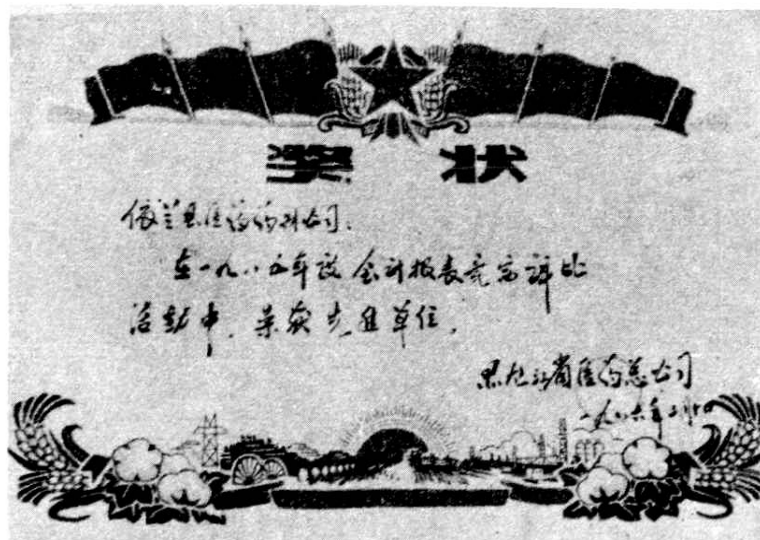 奖状
依兰县医药药材公司：
在一九八五年度会计报表竞赛评比
活动中，荣获先进单位。
黑龙江省医药总公司
一九八六年二月